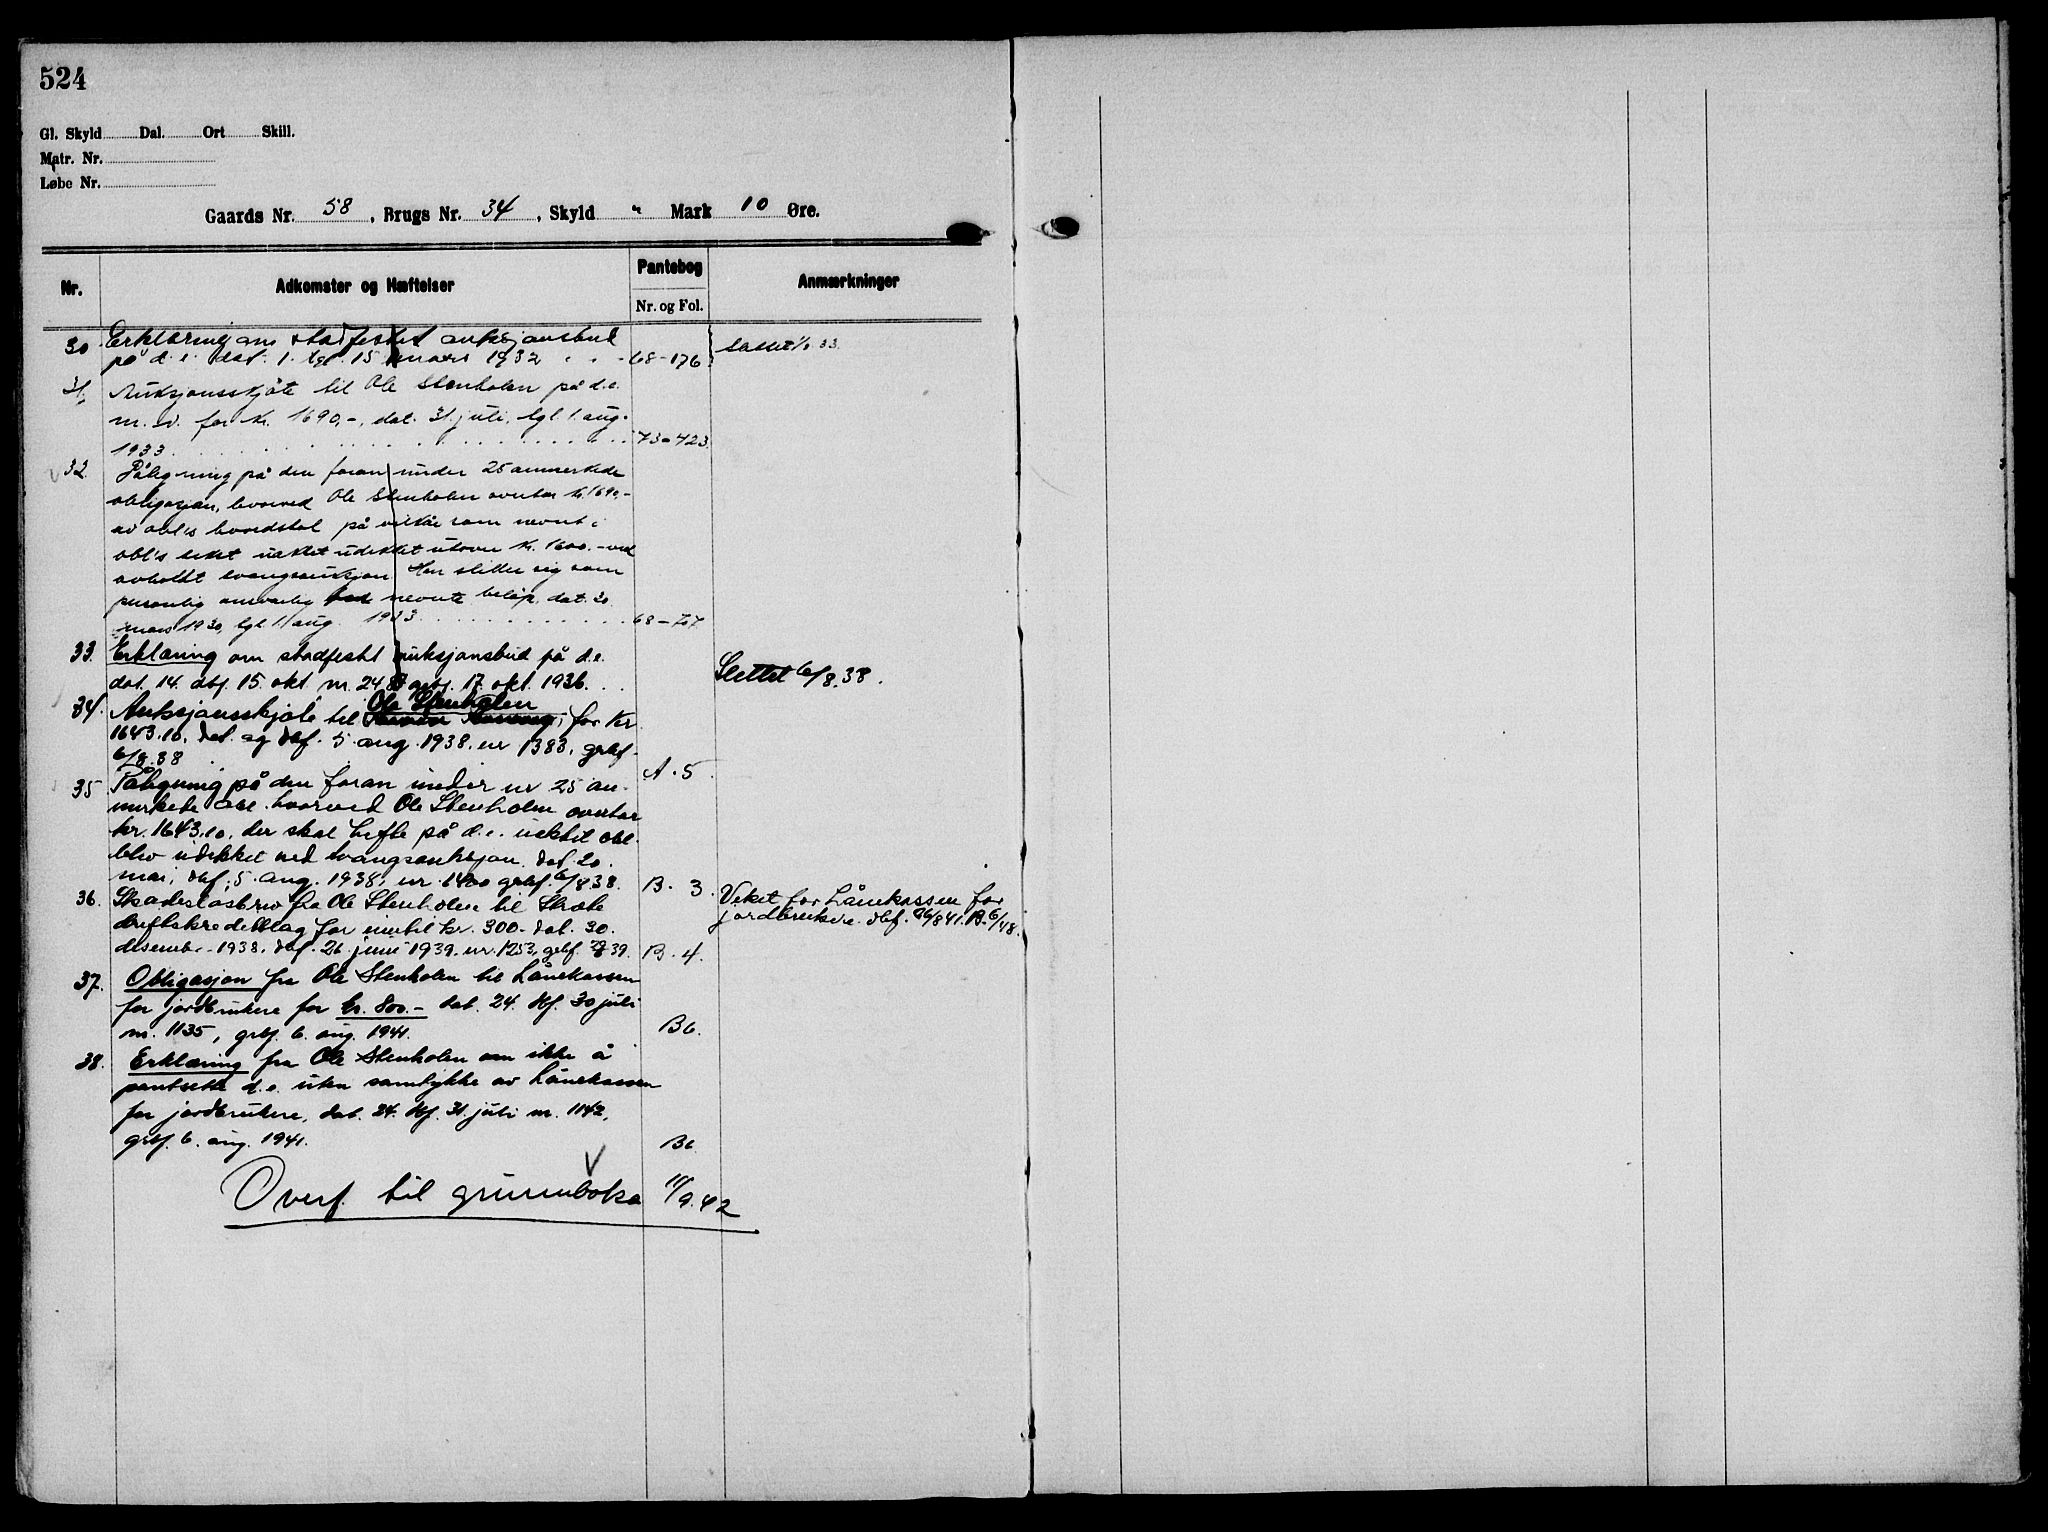 524
Gl. Skyld Dal. Ort Skill.
Matr. Nr.
Løbe Nr.
Gaards Nr. 58, Brugs Nr. 34, Skyld " Mark 10 Øre.
Nr. Adkomster og Hæftelser Pantebog Anmærkninger
Nr. og Fol.
30 Erklæring om stadfestet auksjonsbud
på d. e. dat. 1. tgl. 15 mars 1932 68-176 slettet 1/8 33.
31. Auksjonsskjøte til Ole Stenholen på d.e.
m. v. for kr. 1690,-, dat. 31. juli, tgl. 1. aug.
1933 73-423
32. Påtegning på den foran under 25 anmerkede
obligasjon, hvorved Ole Stenholen overtar kr. 1690,-
av obl's hovedstol på vilkår som nevnt i
obl's uektet udekket utover kr. 1600.- ved
avholdt tvangsauksjon Han stiller sig som
personlig ansvarlig nevnte beløp, dat. 30
mars 1930, tgl. 1. aug. 1933 68-707
33. Erklæring om stadfestet auksjonsbud på d.e.
dat. 14. dbf. 15. okt nr. 248 grbf. 17. okt. 1936. Slettet 6/8.38.
34. Auksjonsskjøte til Ole Stenholen for kr
1643.10, dat. og dbf. 5. aug. 1938. nr 1383, grbf.
6/8.38 A. 5
35 Påtegning på den foran under nr 25 an-
merkede obl. hvorved Ole Stenholen overtar
kr. 1643.10, der skal hefte på d.e. uektet obl.
blev udekket ved tvangsauksjon. dat. 20.
mai, dbf. 5. aug. 1938, nr. 1400 grbf. 6/8 38. B. 3.
36. Skadesløsbrev fra Ole Stenholen til
driftskredittlag for inntil kr. 300.- dat. 30. Veket for Lånekassen for
desember 1938, dbf. 26. juni 1939. nr. 1253, grbf. 39. B. 4. jordbrukere. dbf. 26/8 41. B. 6/48.
37. Obligasjon fra Ole Stenholen til Lånekassen
for jordbrukere for kr. 800.- dat. 24. dbf. 30 juli
nr. 1135, grbf. 6. aug. 1941. B6.
38. Erklæring fra Ole Stenholen om ikke å
pantsette d.e. uten samtykke av Lånekassen
for jordbrukere, dat. 24. dbf. 31. juli nr. 1142,
grbf. 6. aug. 1941. B6
Overf. til grunnboka 11/9.42